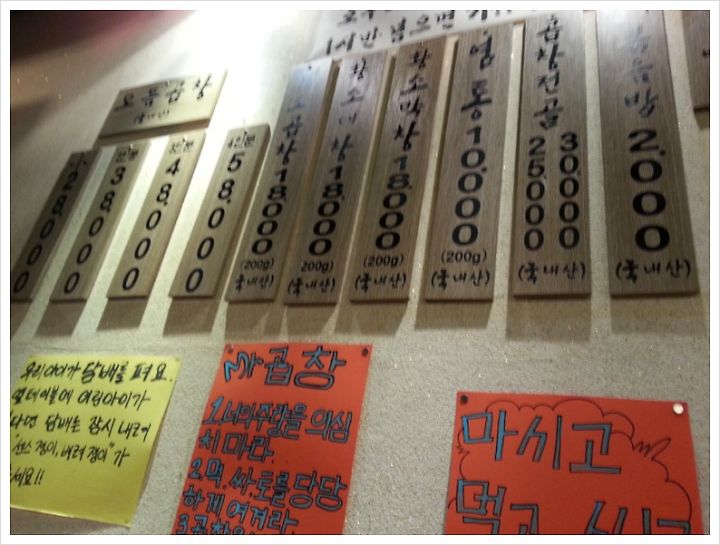 1시반 넘으면
모듬곱창
(국내산)
28,000
3인분
38,000
48,000
4인분
58,000
소곱창 18,000
(200g)
(국내산)
황소대창 18,000
(200g)
(국내산)
황소막창 18,000
(200g)
(국내산)
염통 10,000
(200g)
(국내산)
곱창전골
25,000
30,000
(국내산)
2,000
(국내산)
우리 아이가 담배를 펴요.
옆 테이블에 어린아이가
다면 담배는 잠시 내려
"센스 쟁이, 배려 쟁이"가
세요!!
곱창
1. 너의 주량을 의심
치 마라.
2. 먹. 싸. 토를 당당
하게 여겨라.
3. 곱창을
마시고
먹고